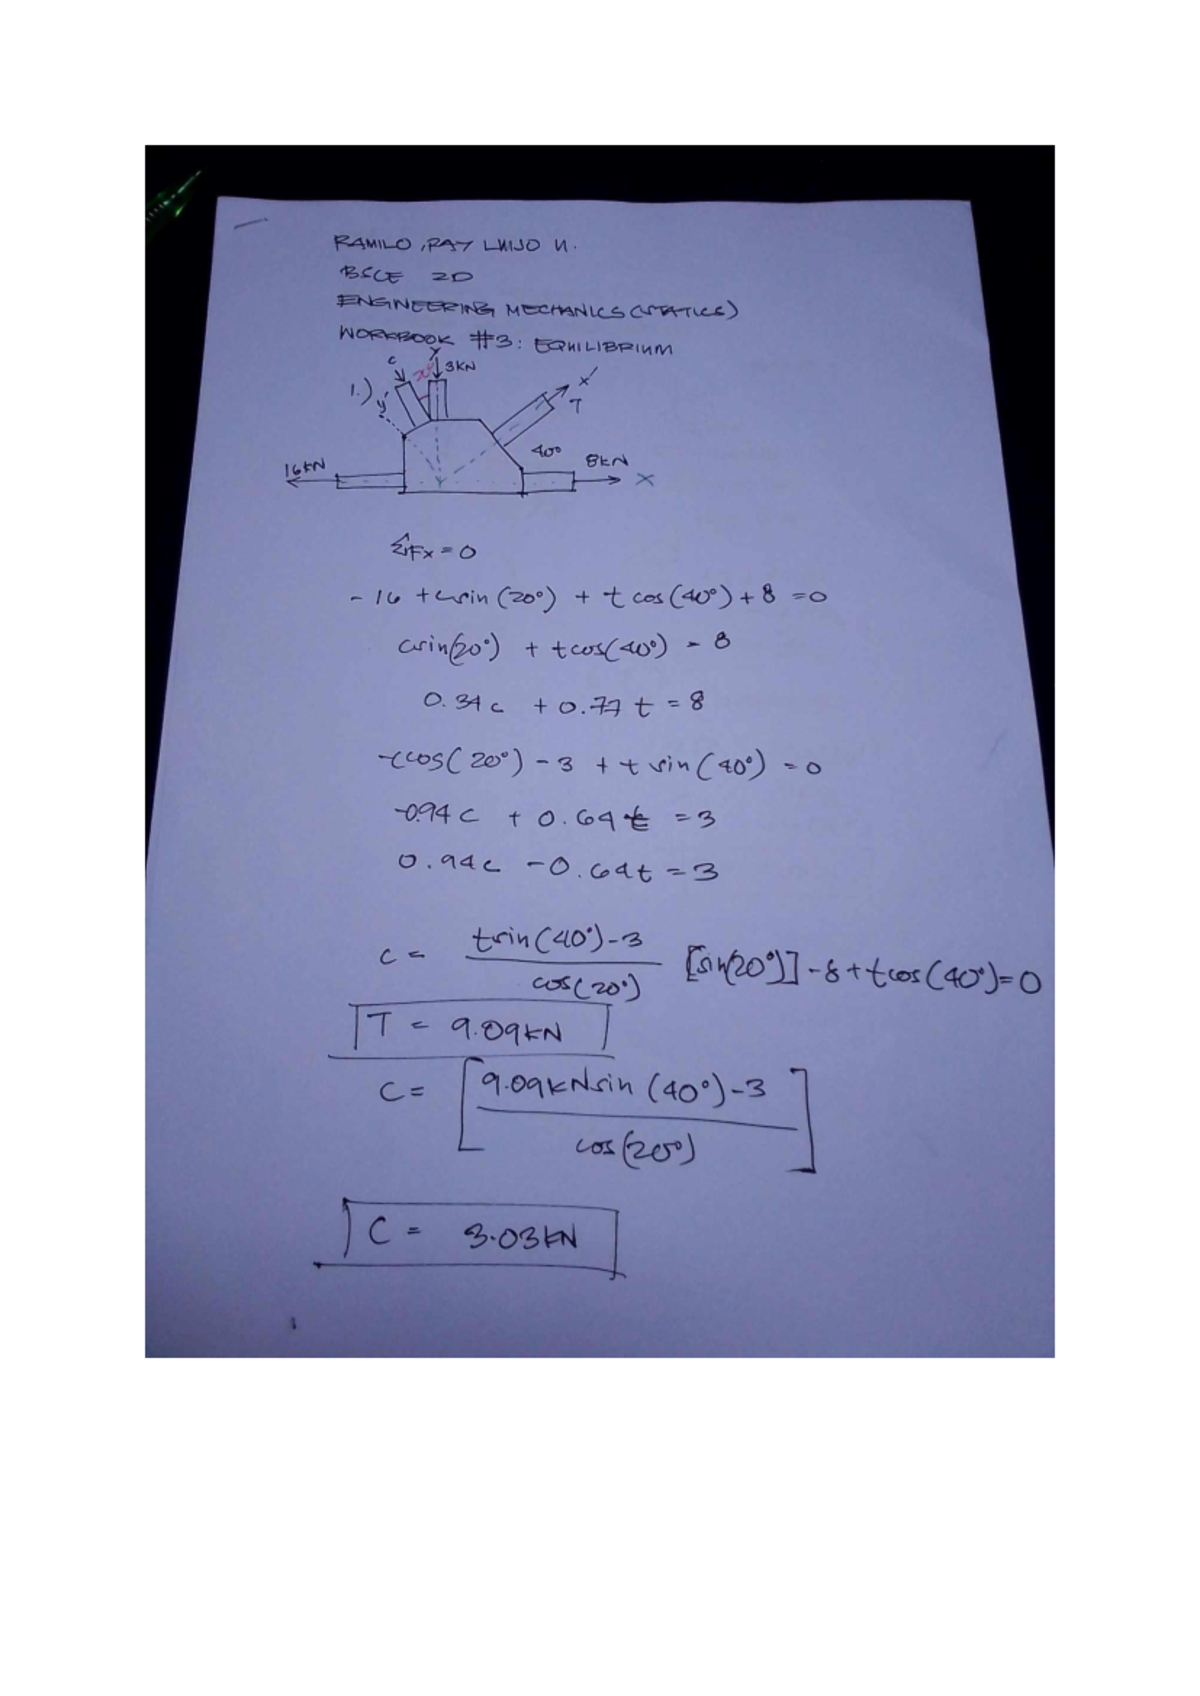 RAMILO, RAY LUIJO N.
BSCE 2D
ENGINEERING MECHANICS (STATICS)
WORKBOOK #3: EQUILIBRIUM
1.)
C
20°
Y
3KN
y'
x'
T
40°
16KN
8KN
X
ΣFx = 0
- 16 + csin (20°) + t cos (40°) + 8 = 0
csin(20°) + tcos(40°) = 8
0.34 c + 0.77 t = 8
-ccos (20°) - 3 + t sin (40°) = 0
-0.94 c + 0.64 t = 3
0.94c - 0.64t = 3
c = tsin (40°) - 3 / cos (20°) [sin(20°)] - 8 + tcos (40°) = 0
T = 9.09KN
C = [9.09KNsin (40°) - 3 / cos (20°)]
C = 3.03KN